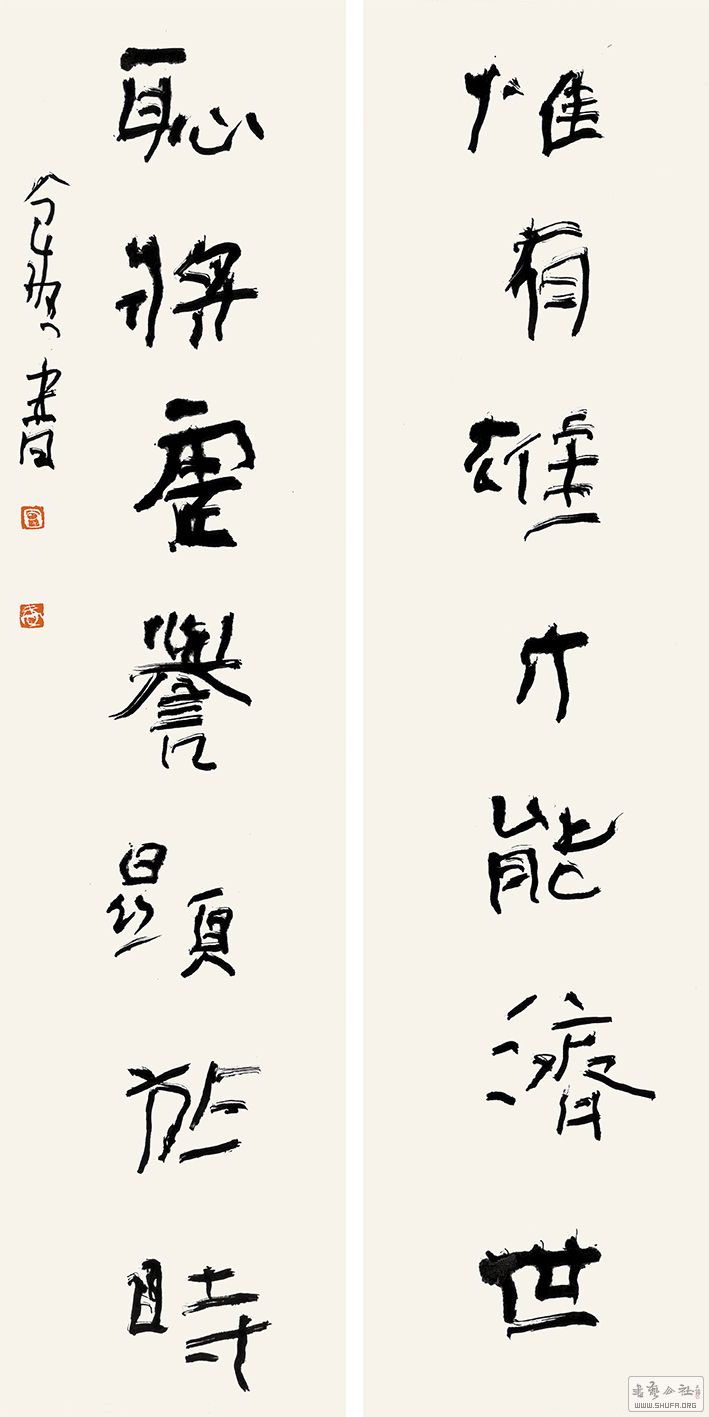 惟有雄才能濟世
恥將虛譽顯於時
書
書藝公社
WWW.SHUFA.ORG